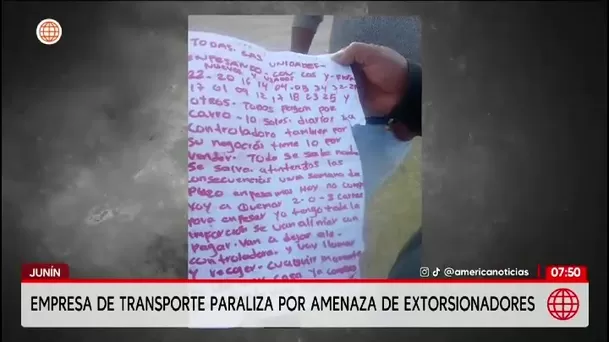 TODAS. LAS UNIDADES-
EMPESANDO - CON LOS Y-
NUEVOS USADOS
22-20 16 14 04-08 34 32-
17 01 09 12 17 18 03 25 y
otros. Todos pagan por
carro - 10 soles. diarios la
controladora tambien por
su negocios tiene 10 por
vender. Todo se sabe nadie
se salva. atentos las
consecuencias una semana de
plazo empesamos Hoy no cumple
voy a Quemar 2-0-3 carros
para empesar ya tengo toda la
imforcion se van alinear con
pagar. van a dejar ala
controladora. y van llamar
y recoger. cualquir momento
JUNÍN
@americanoticias
07:50
EMPRESA DE TRANSPORTE PARALIZA POR AMENAZA DE EXTORSIONADORES